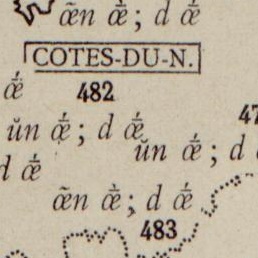 œ̃n œ̄́ ; d œ̄́
COTES-DU-N.
œ̄́
482
ŭn œ̄́ ; d œ̄́
47
ŭn œ̄́ ; d
d œ̄́
œ̃n œ̄̀ ; d œ̄́
483